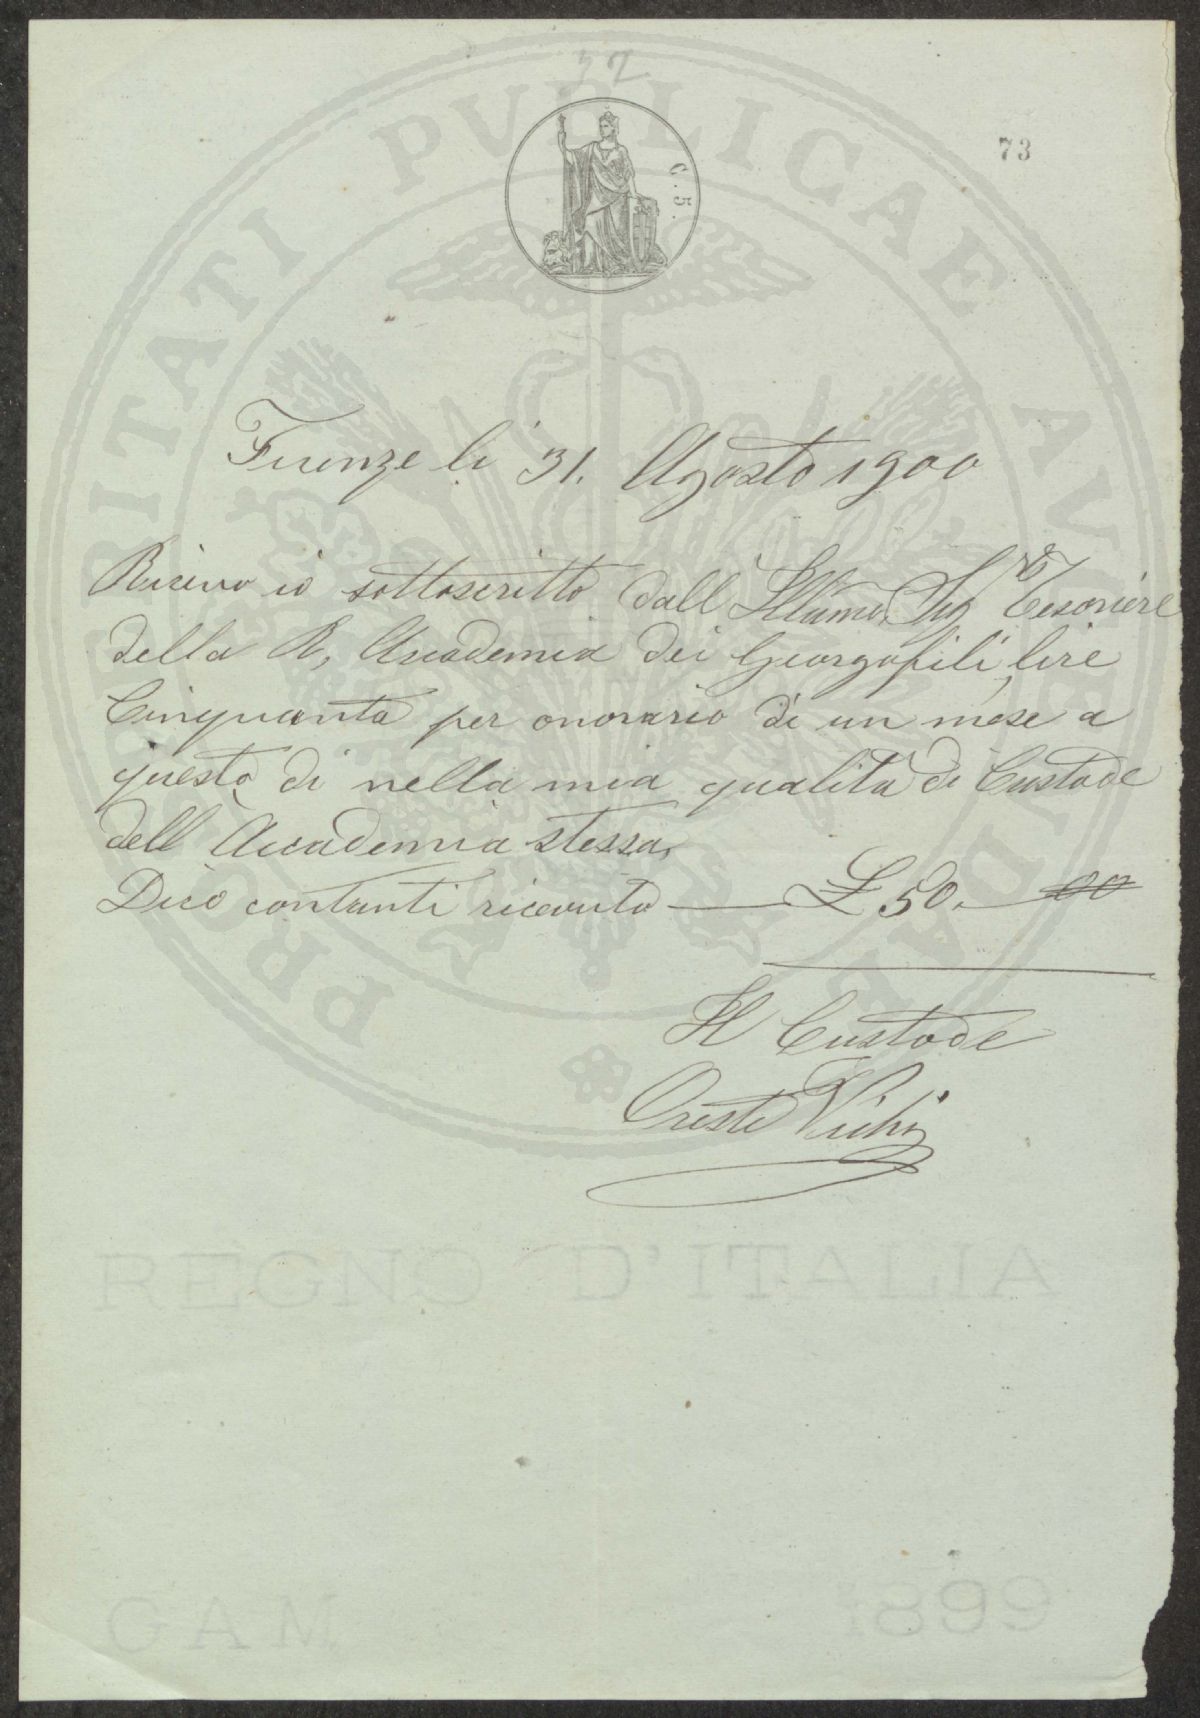 32
73
C. 5.
PROSPERITATI PVBLICAE AVGENDAE
Firenze li 31. Agosto 1900
Ricevo io sottoscritto dall Illumo. Sig.re Tesoriere
della R. Accademia dei Georgofili, lire
Cinquanta per onorario di un mese a
questo di nella mia qualità di Custode
dell Accademia stessa,
Dico contanti ricevuto — £ 50. 00
Il Custode
Oreste Vichi
REGNO D'ITALIA
GAM 1899